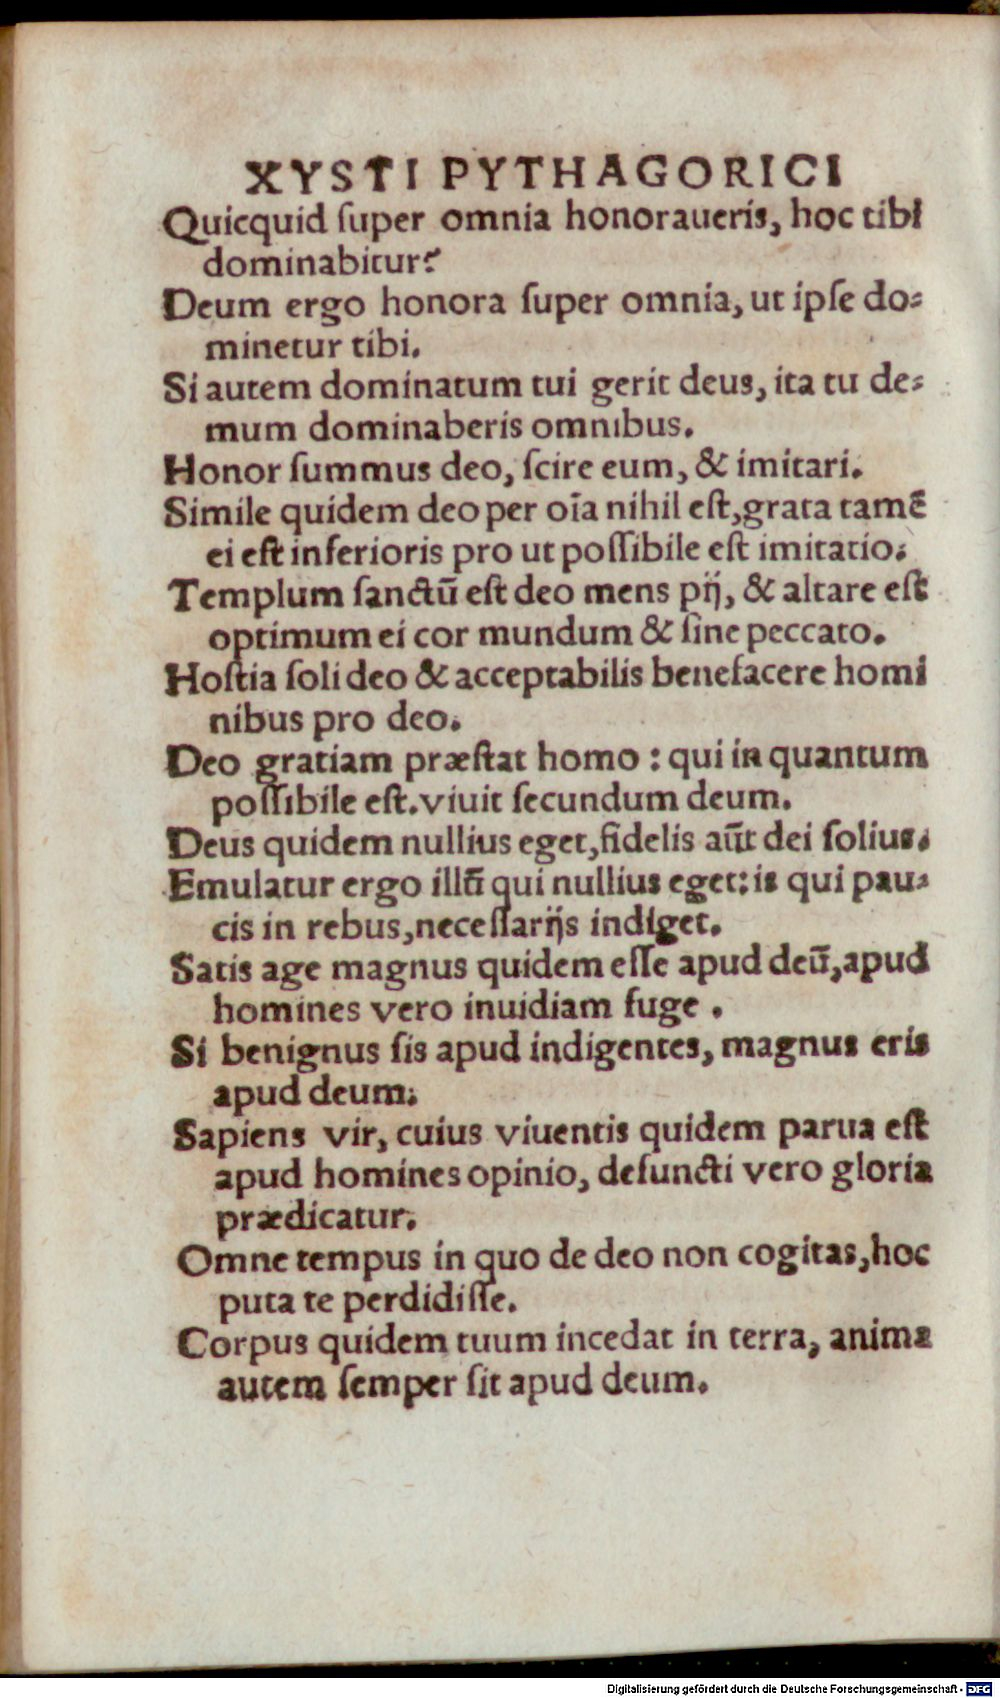 XYSTI PYTHAGORICI
Quicquid ſuper omnia honoraueris, hoc tibi
dominabitur?
Deum ergo honora ſuper omnia, ut ipſe do⸗
minetur tibi.
Si autem dominatum tui gerit deus, ita tu de⸗
mum dominaberis omnibus.
Honor ſummus deo, ſcire eum, & imitari.
Simile quidem deo per oīa nihil eſt, grata tamē
ei eſt inferioris pro ut poſſibile eſt imitatio.
Templum ſanctū eſt deo mens pij, & altare eſt
optimum ei cor mundum & ſine peccato.
Hoſtia ſoli deo & acceptabilis benefacere homi
nibus pro deo.
Deo gratiam præſtat homo : qui in quantum
poſſibile eſt. viuit ſecundum deum.
Deus quidem nullius eget, fidelis aūt dei ſolius.
Emulatur ergo illū qui nullius eget: is qui pau⸗
cis in rebus, neceſſarijs indiget.
Satis age magnus quidem eſſe apud deū, apud
homines vero inuidiam fuge .
Si benignus ſis apud indigentes, magnus eris
apud deum.
Sapiens vir, cuius viuentis quidem parua eſt
apud homines opinio, defuncti vero gloria
prædicatur.
Omne tempus in quo de deo non cogitas, hoc
puta te perdidiſſe.
Corpus quidem tuum incedat in terra, anima
autem ſemper ſit apud deum.
Digitalisierung gefördert durch die Deutsche Forschungsgemeinschaft - DFG